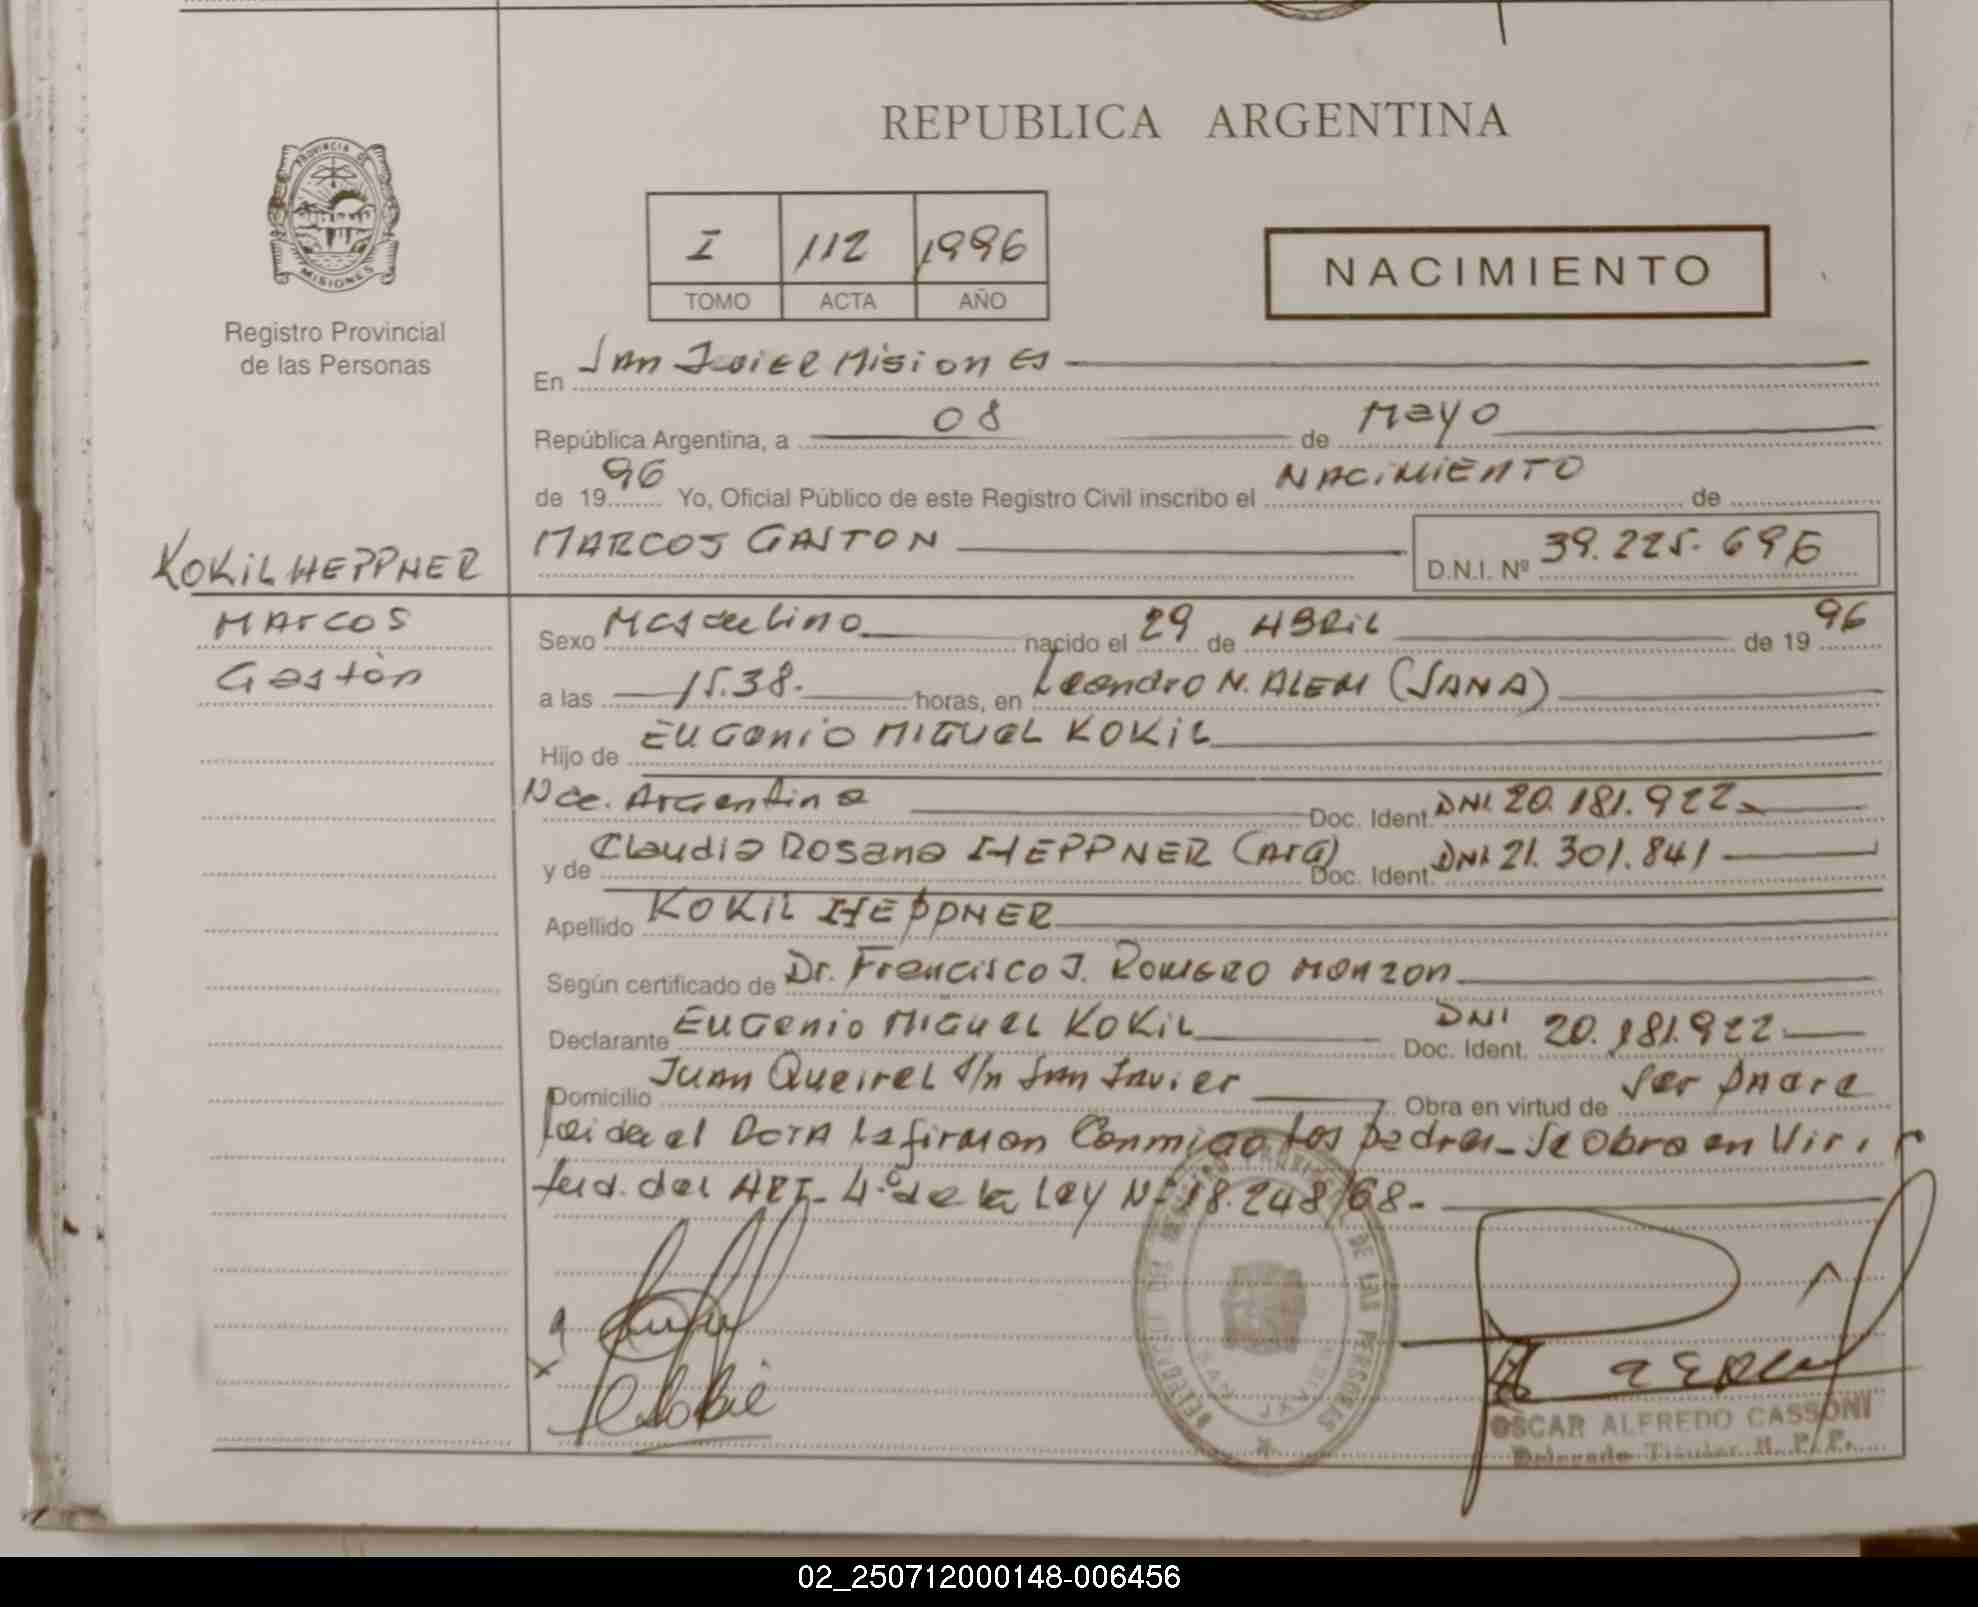 REPUBLICA ARGENTINA
PROVINCIA DE
MISIONES
Registro Provincial
de las Personas
I 112 1996
TOMO ACTA AÑO
NACIMIENTO
En San Javier Misiones
República Argentina, a 08 de Mayo
de 1996 Yo, Oficial Público de este Registro Civil inscribo el NACIMIENTO de
KOKIL HEPPNER
MARCOS GASTON D.N.I. Nº 39.225.696
Marcos
Gastón
Sexo Masculino nacido el 29 de ABRIL de 1996
a las 15.38. horas, en Leandro N. ALEM (SANA)
Hijo de EUGENIO MIGUEL KOKIL
Nac. Argentina Doc. Ident. DNI 20.181.922
y de Claudia Rosana HEPPNER (Arg) Doc. Ident. DNI 21.301.841
Apellido KOKIL HEPPNER
Según certificado de Dr. Francisco J. Romero Monzon
Declarante EUGENIO MIGUEL KOKIL Doc. Ident. DNI 20.181.922
Domicilio Juan Queirel s/n San Javier Obra en virtud de Ser Padre
Leida el Acta la firman Conmigo los padres_ Se Obra en Vir
tud. del ART_ 4º de la Ley Nº 18.248/68_
DE LAS PERSONAS
OSCAR ALFREDO CASSONI
Delegado Titular R. P. P.
02_250712000148-006456